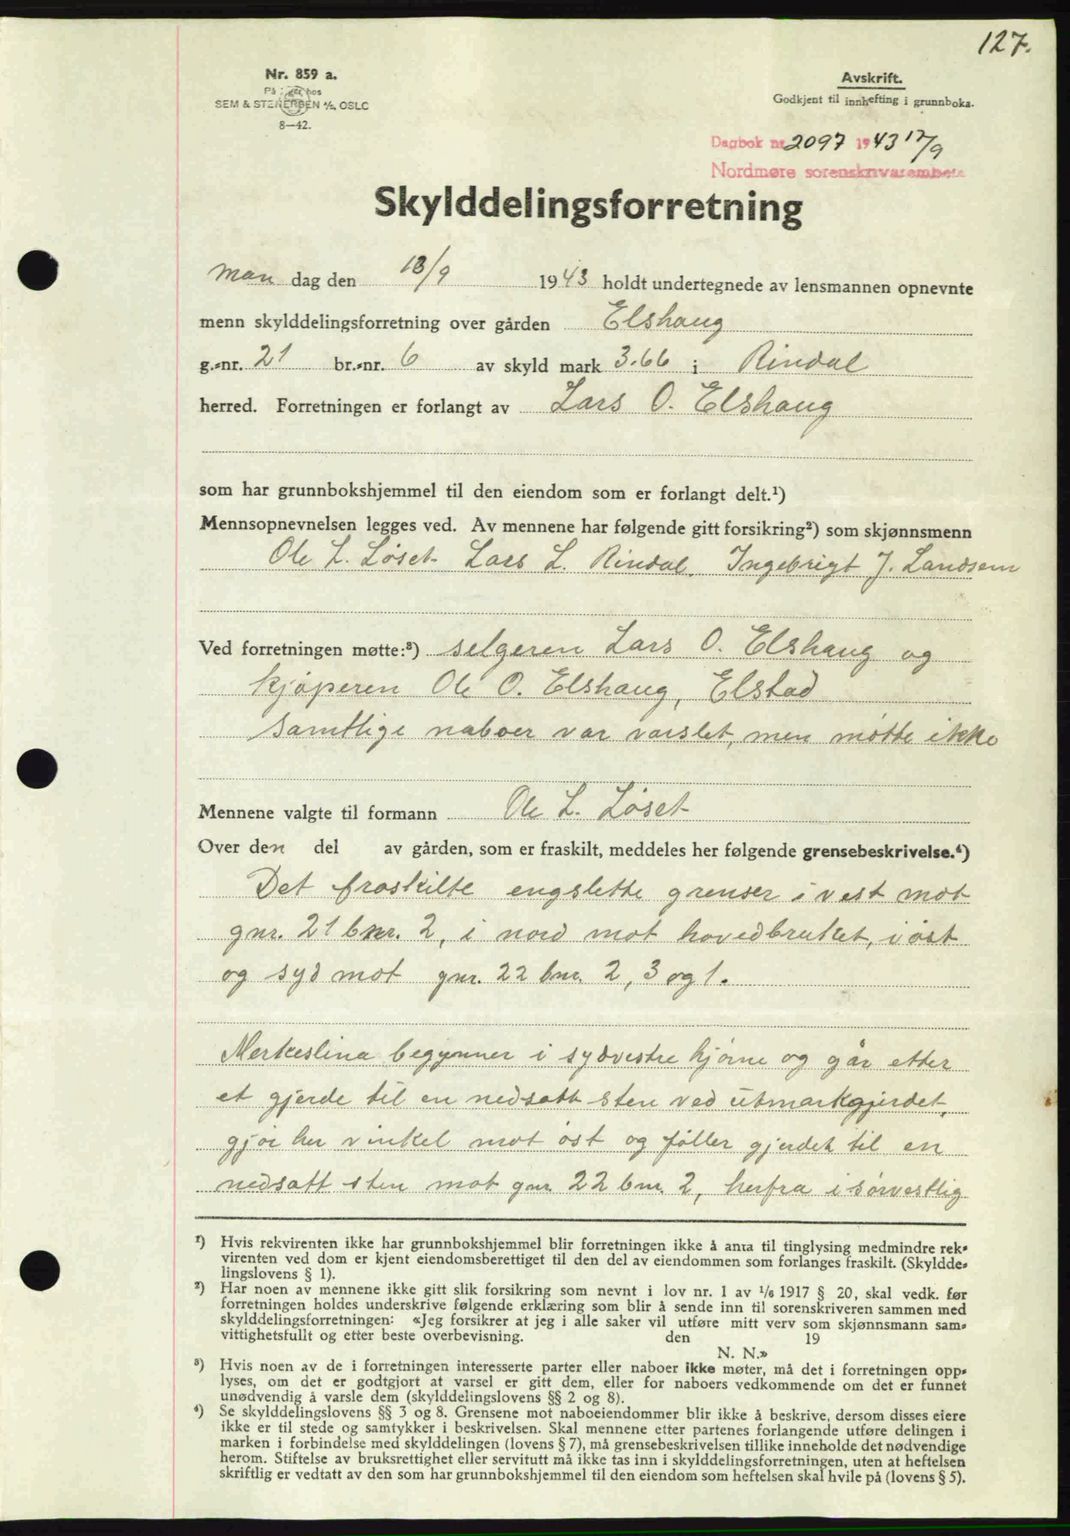 127.
Nr. 859 a.
På lager hos
SEM & STENERSEN A/S, OSLO
8—42.
Avskrift.
Godkjent til innhefting i grunnboka.
Dagbok nr. 2097 1943 17/9
Nordmøre sorenskrivarembete
Skylddelingsforretning
man dag den 13/9 1943 holdt undertegnede av lensmannen opnevnte
menn skylddelingsforretning over gården Elshaug
g.-nr. 21 br.-nr. 6 av skyld mark 3.66 i Rindal
herred. Forretningen er forlangt av Lars O. Elshaug
som har grunnbokshjemmel til den eiendom som er forlangt delt.¹)
Mennsopnevnelsen legges ved. Av mennene har følgende gitt forsikring²) som skjønnsmenn
Ole L. Løset. Lars L. Rindal. Ingebrigt J. Landsem
Ved forretningen møtte:³) selgeren Lars O. Elshaug og
kjøperen Ole O. Elshaug, Elstad
Samtlige naboer var varslet, men møtte ikke
Mennene valgte til formann Ole L. Løset
Over den del av gården, som er fraskilt, meddeles her følgende grensebeskrivelse.⁴)
Det fraskilte engslette grenser i vest mot
gnr. 21 bnr. 2, i nord mot hovedbruket, i øst
og syd mot gnr. 22 bnr. 2, 3 og 1.
Merkeslina begynner i sydvestre hjørne og går etter
et gjerde til en nedsatt sten ved utmarkgjerdet,
gjør her vinkel mot øst og føller gjerdet til en
nedsatt sten mot gnr. 22 bnr. 2, herfra i sørvestlig
¹) Hvis rekvirenten ikke har grunnbokshjemmel blir forretningen ikke å anta til tinglysing medmindre rek-
virenten ved dom er kjent eiendomsberettiget til den del av eiendommen som forlanges fraskilt. (Skyldde-
lingslovens § 1).
²) Har noen av mennene ikke gitt slik forsikring som nevnt i lov nr. 1 av 1/6 1917 § 20, skal vedk. før
forretningen holdes underskrive følgende erklæring som blir å sende inn til sorenskriveren sammen med
skylddelingsforretningen: «Jeg forsikrer at jeg i alle saker vil utføre mitt verv som skjønnsmann sam-
vittighetsfullt og etter beste overbevisning. den 19
N. N.»
³) Hvis noen av de i forretningen interesserte parter eller naboer ikke møter, må det i forretningen opp-
lyses, om det er godtgjort at varsel er gitt dem, eller for naboers vedkommende om det er funnet
unødvendig å varsle dem (skylddelingslovens §§ 2 og 8).
⁴) Se skylddelingslovens §§ 3 og 8. Grensene mot naboeiendommer blir ikke å beskrive, dersom disses eiere
ikke er til stede og samtykker i beskrivelsen. Skal mennene etter partenes forlangende utføre delingen i
marken i forbindelse med skylddelingen (lovens § 7), må grensebeskrivelsen tillike inneholde det nødvendige
herom. Stiftelse av bruksrettighet eller servitutt må ikke tas inn i skylddelingsforretningen, uten at heftelsen
skriftlig er vedtatt av den som har grunnbokshjemmel til den eiendom som heftelsen skal hvile på (lovens § 5).